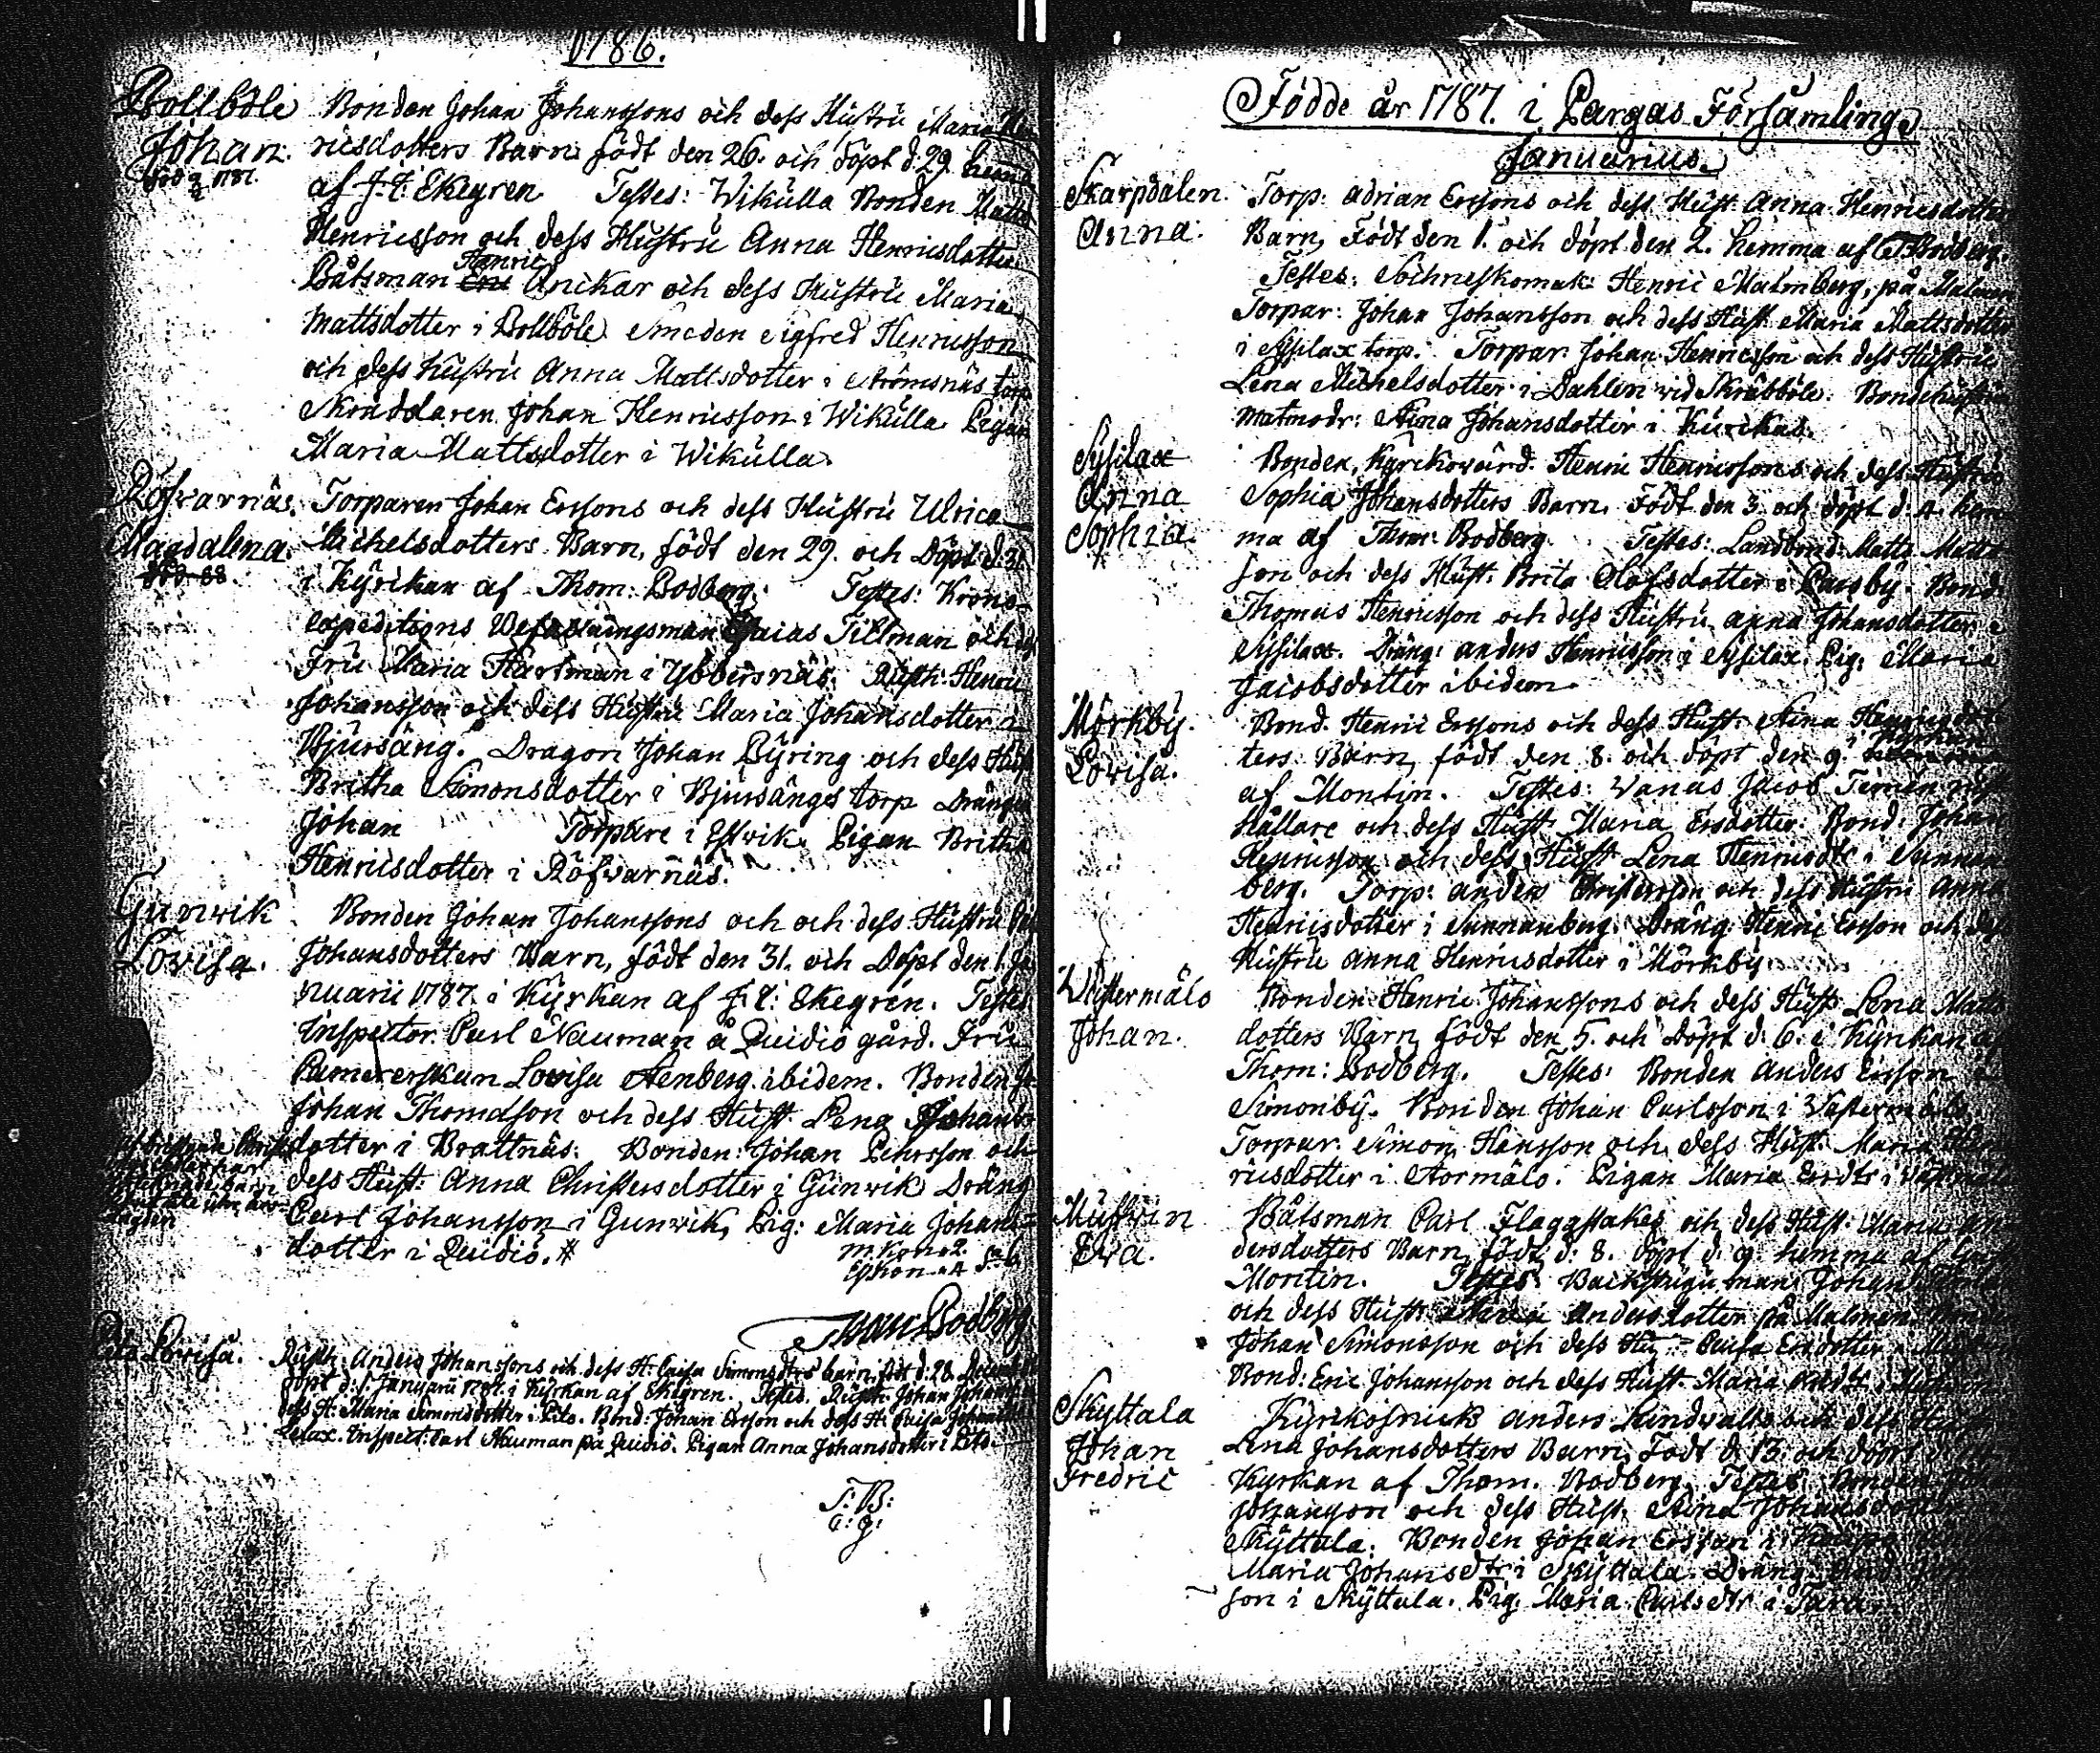 1786.
Bollböle
Johan.
död 2/2 1787.
Bonden Johan Johanssons och dess Hustru Maria Hen
ricsdotters Barn födt den 26. och döpt d. 29. hema
af J: J: Ekegren Testes: Wikulla Bonden Matts
Henricsson och dess Hustru Anna Henricsdotter
Henric
Båtsman Eric Anckar och dess Hustru Maria
Mattsdotter i Bollböle Smeden Sigfred Henricsson
och dess Hustru Anna Mattsdotter i Strömsnäs torp
Skräddaren Johan Henricsson i Wikulla Pigan
Maria Mattsdotter i Wikulla.
Röfvarnäs.
Magdalena.
död 88.
Torparen Johan Erssons och dess Hustru Ulrica
Michelsdotters Barn, födt den 29. och Döpt d. 31.
i Kyrckan af Thom: Bodberg. Testes: Krono
expeditions Befallningsman Esaias Tillman och
Fru Maria Hartman i Ybbersnäs. Rusth: Henric
Johansson och dess Hustru Maria Johansdotter i
Bjursäng. Dragon Johan Byring och dess Hust
Britha Simonsdotter i Bjursängs torp Drängen
Johan Torpare i Eswik. Pigan Britha
Henricsdotter i Röfvarnäs.
Gunwik
Lovisa.
Bonden Johan Johanssons och och dess Hustru
Johansdotters Barn, födt den 31. och Döpt den 1. Ja
nuarii 1787. i Kyrkan af J: J: Ekegren. Testes
Inspector Carl Nauman å Quidio gård. Fru
Camererskan Lovisa Stenberg ibidem. Bonden
Johan Thomasson och dess Hust. Lena Johans
dotter i Brattnäs. Bonden: Johan Pehrsson och
dess Hust: Anna Christersdotter i Gunwik Dräng
Carl Johansson i Gunwik, Pig: Maria Johans
dotter i Quidio. #
M. Kön 2.
Q Kön 4 S:a 6.
Thom Bodberg
Lovisa.
Rusth: Anders Johanssons och dess H: Caisa Simonsdtrs barn, födt d. 28. Decemb
döpt d. 1. Januarii 1787. i Kyrkan af Ekegren. Testes. Rusth. Johan Johansson
dess H: Maria Simonsdotter i Lito. Bond: Johan Ersson och dess H: Caisa Johansd
Inspect. Carl Nauman på Quidio. Pigan Anna Johansdotter i Lito.
T: B:
Födde år 1787. i Pargas Församling
Januarius.
Skarpdalen.
Anna.
Torp: Adrian Erssons och dess Hust Anna Henricsdotter
Barn, Födt den 1. och döpt den 2. hemma af T Bodberg.
Testes: Sochneskomak. Henric Malmberg, på Malmen
Torpar: Johan Johansson och dess Hust. Maria Mattsdotter
i Sysilax torp. Torpar Johan Henricsson och dess Hustru
Lena Michelsdotter i Dahlen wid Skräbböle. Bondehustru
Matmodr: Stina Johansdotter i Kurckas.
Sysilax
Anna
Sophia.
Bonden, Kyrckowärd. Henric Henricssons och dess Hustru
Sophia Johansdotters Barn. Födt den 3. och döpt d. 4. hem
ma af Thom: Bodberg. Testes: Landbond: Matts Matts
son och dess Hust: Brita Olofsdotter i Parsby. Bond.
Thomas Henricsson och dess Hustru Anna Johansdotter i
Sysilax. Dräng: Anders Henricsson i Sysilax. Pig: Maria
Jacobsdotter ibidem
Mörkby.
Lovisa.
Bond. Henric Erssons och dess Hust: Stina Henricsdot
ters Barn, födt den 8. och döpt den 9.
af Montin. Testes: Wanas Jacob
hållare och dess Hust. Maria Ersdotter. Bond. Johan
Henricsson och dess Hust Lena Henricsdtr i Sunnan
berg. Torp: Anders Christersson och dess Hustru Anna
Henricsdotter i Sunnanberg. Dräng Henric Ersson och dess
Hustru Anna Henricsdotter i Mörkby
Wästermälo
Johan.
Bonden Henric Johanssons och dess Hust Lena Matts
dotters Barn, födt den 5. och döpt d. 6. i Kyrckan af
Thom: Bodberg. Testes: Bonden Anders Ersson i
Simonby. Bonden Johan Carlsson i Wästermälo.
Torpar. Simon Hansson och dess Hust. Maria Hen
ricsdotter i Stormälo. Pigan Maria Ersdtr i Wästmälo
Musvin
Eva.
Båtsman Carl Flaggstakes och dess Hust: Maria An
dersdotters Barn, födt d. 8. döpt d. 9. hemma af
Montin. Testes: Backstugu man. Johan
och dess Hust: Andersdotter på Malmen.
Johan Simonsson och dess Hu = Caisa Ersdotter
Bond: Eric Johansson och dess Hust: Maria
Skyttala
Johan
Fredric
Kyrkosnick Anders Lindvalls och dess
Lena Johansdotters Barn, Födt d. 13. och döpt
Kyrkan af Thom. Bodberg. Testes. Bonden
Johansson och dess Hust. Stina Johansdotter
Skyttala. Bonden Johan Ersson i
Maria Johansdtr i Skyttala. Dräng.
son i Skyttala. Pig. Maria Carlsdtr i